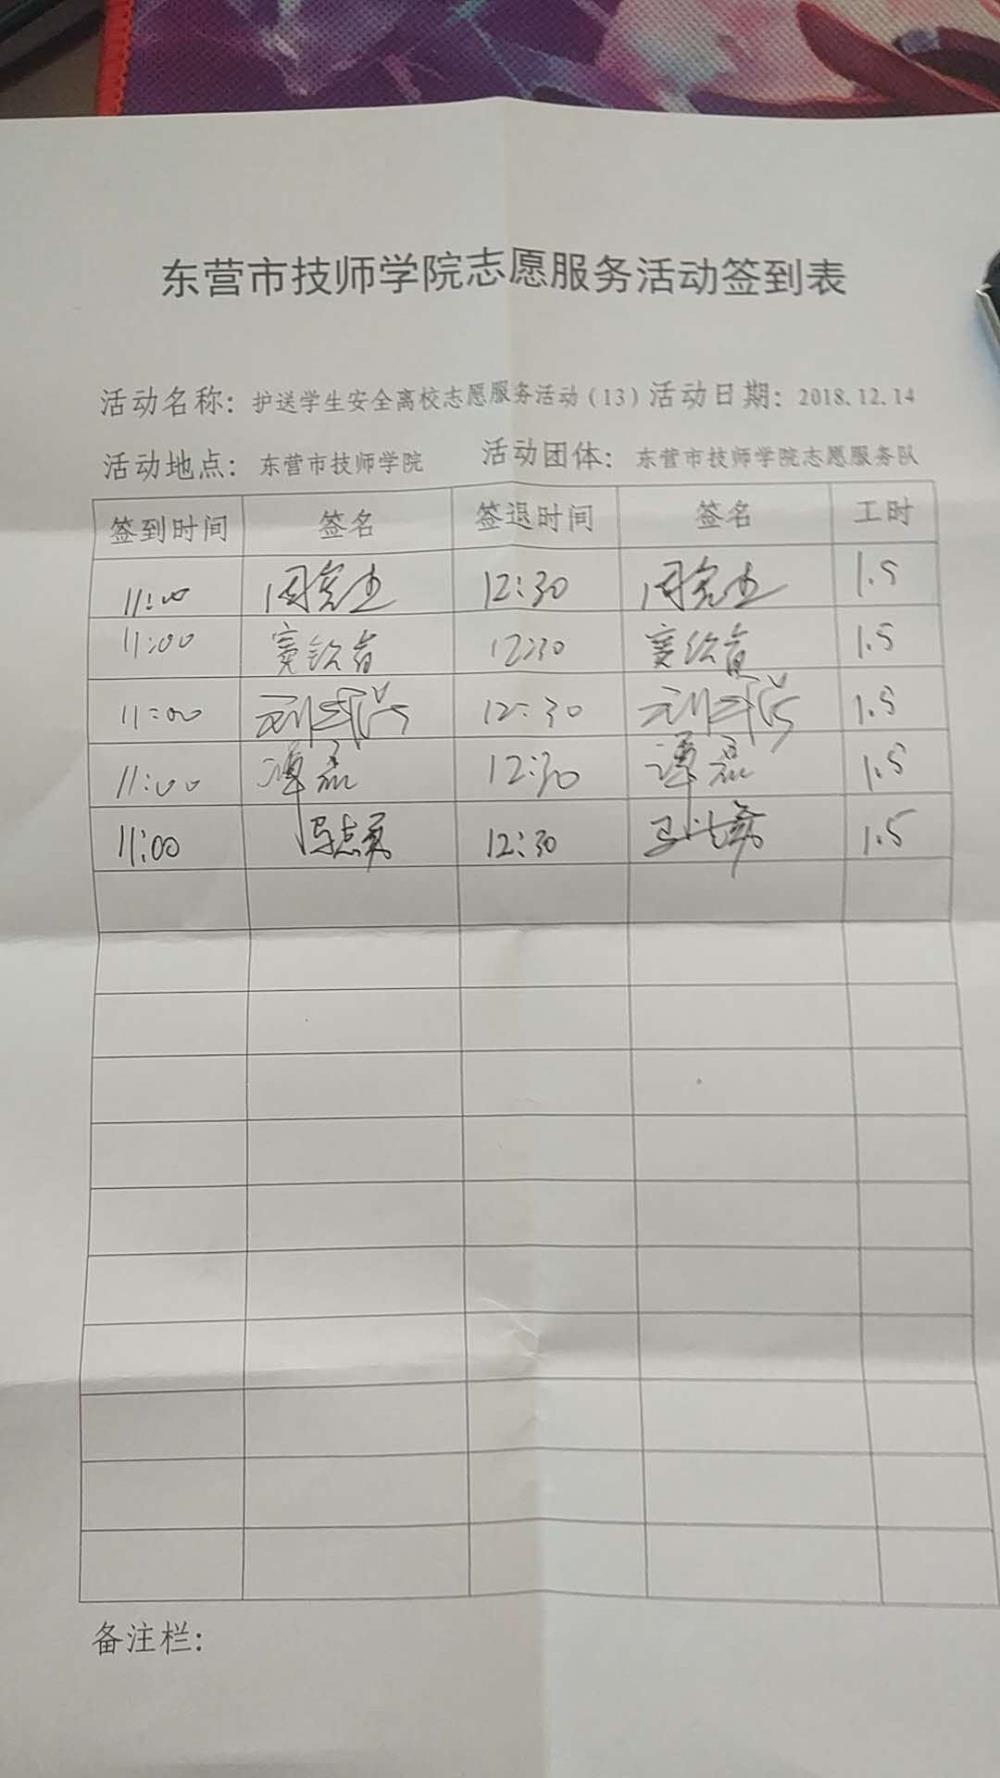 东营市技师学院志愿服务活动签到表
活动名称：护送学生安全离校志愿服务活动（13）活动日期：2018.12.14
活动地点：东营市技师学院 活动团体：东营市技师学院志愿服务队
签到时间 签名 签退时间 签名 工时
11:00 12:30 1.5
11:00 12:30 1.5
11:00 12:30 1.5
11:00 谭磊 12:30 谭磊 1.5
11:00 12:30 1.5
备注栏：